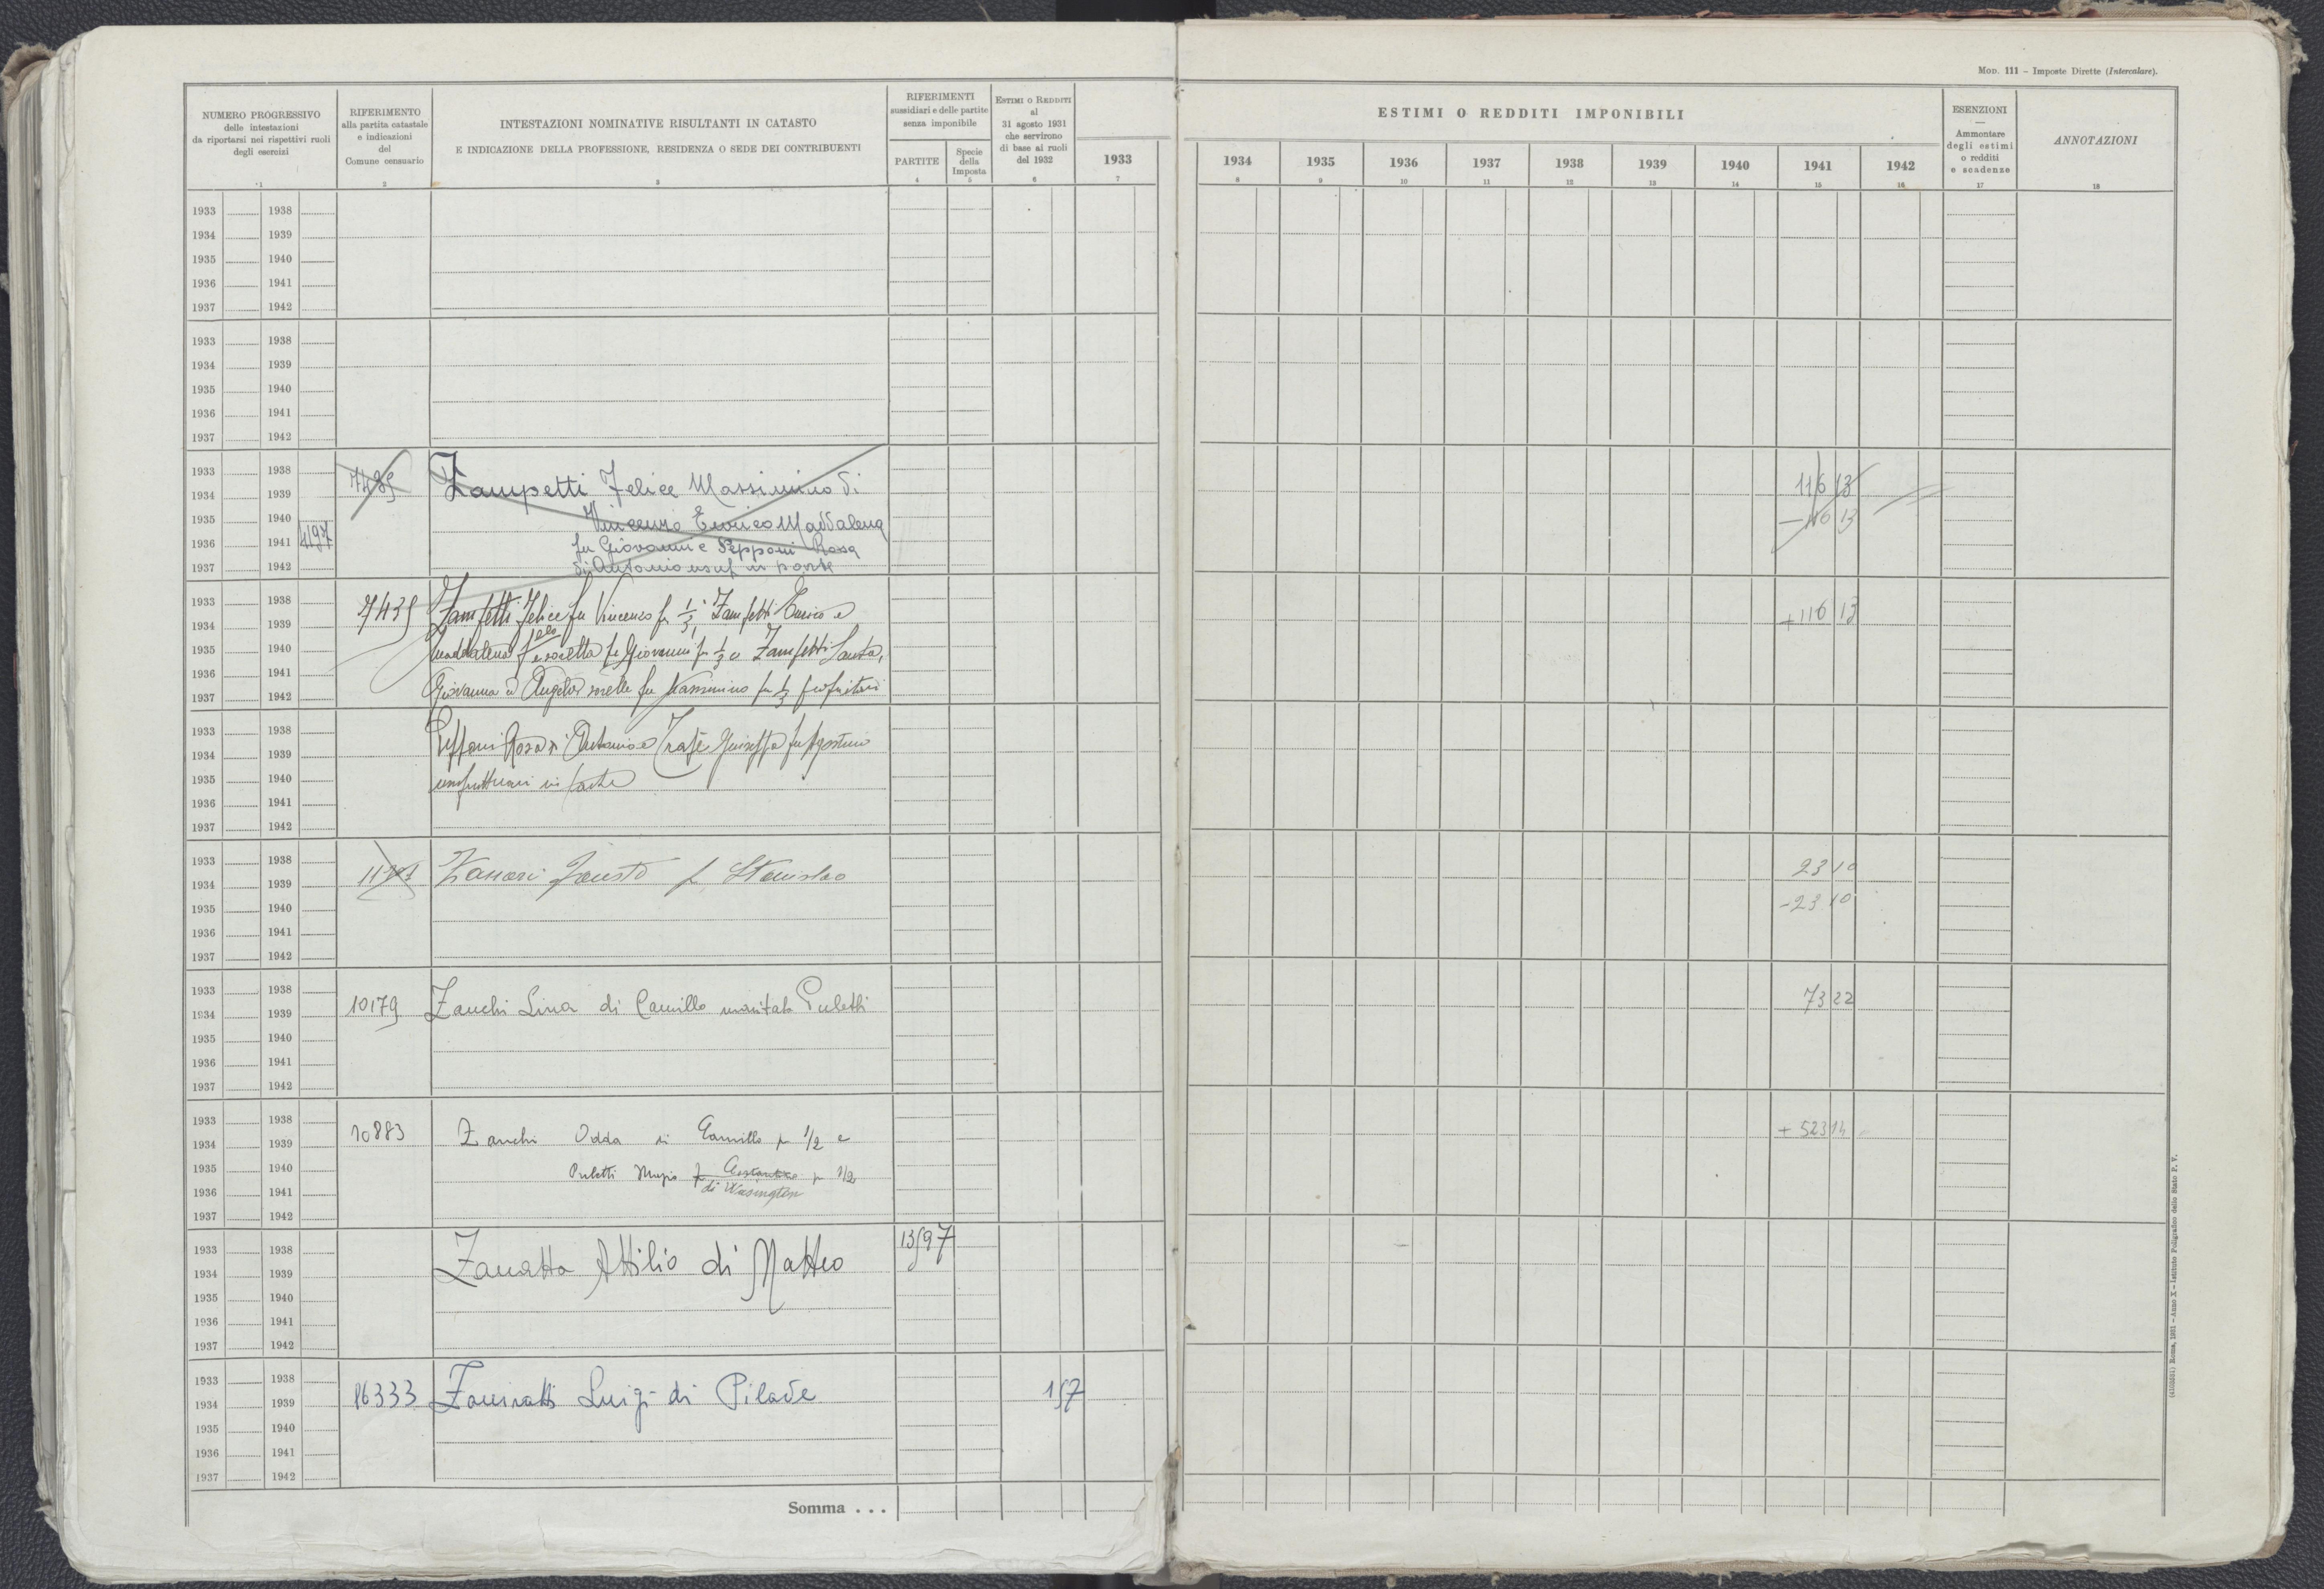 Mod. 111 – Imposte Dirette (Intercalare).
NUMERO PROGRESSIVO
delle intestazioni
da riportarsi nei rispettivi ruoli
degli esercizi
1
RIFERIMENTO
alla partita catastale
e indicazioni
del
Comune censuario
2
INTESTAZIONI NOMINATIVE RISULTANTI IN CATASTO
E INDICAZIONE DELLA PROFESSIONE, RESIDENZA O SEDE DEI CONTRIBUENTI
3
RIFERIMENTI
sussidiari e delle partite
senza imponibile
PARTITE
4
Specie
della
Imposta
5
Estimi o Redditi
al
31 agosto 1931
che servirono
di base ai ruoli
del 1932
6
1933
7
ESTIMI O REDDITI IMPONIBILI
1934 1935 1936 1937 1938 1939 1940 1941 1942
8 9 10 11 12 13 14 15 16
ESENZIONI
—
Ammontare
degli estimi
o redditi
e scadenze
17
ANNOTAZIONI
18
1933 1938
1934 1939
1935 1940
1936 1941
1937 1942
1933 1938
1934 1939
1935 1940
1936 1941
1937 1942
1933 1938
1934 1939 7435 Zampetti Felice Massimino di 116 13
1935 1940 Vincenzo Enrico Maddalena — 116 13
1936 1941 4197 fu Giovanni e Pepponi Rosa
1937 1942 di Antonio usuf in parte
1933 1938
1934 1939 7435 Zampetti Felice fu Vincenzo p 1/3, Zampetti Enrico e +116 13
1935 1940 Maddalena fu Giovanni p 1/3 e Zampetti Santa,
1936 1941
1937 1942 Giovanna ed Angela sorelle fu Massimino p 1/3 proprietari
1933 1938
1934 1939 Pepponi Rosa di Antonio e Giuseppa fu Agostino
1935 1940 usufruttuari in parte
1936 1941
1937 1942
1933 1938
1934 1939 Fausto fu Stanislao 23 10
1935 1940 -23 10
1936 1941
1937 1942
1933 1938
1934 1939 10179 Zanchi Lina di Camillo maritata Puletti 73 22
1935 1940
1936 1941
1937 1942
1933 1938
1934 1939 10883 Zanchi Odda di Camillo p 1/2 e + 523 14
1935 1940 Puletti Muzio fu Costantino p 1/2
1936 1941 di Wasington
1937 1942
1933 1938 13597
1934 1939 Zanatta Attilio di Matteo
1935 1940
1936 1941
1937 1942
1933 1938
1934 1939 16333 Luigi di Pilade 157
1935 1940
1936 1941
1937 1942
Somma . . .
Roma, 1931 – Anno X – Istituto Poligrafico dello Stato P. V.